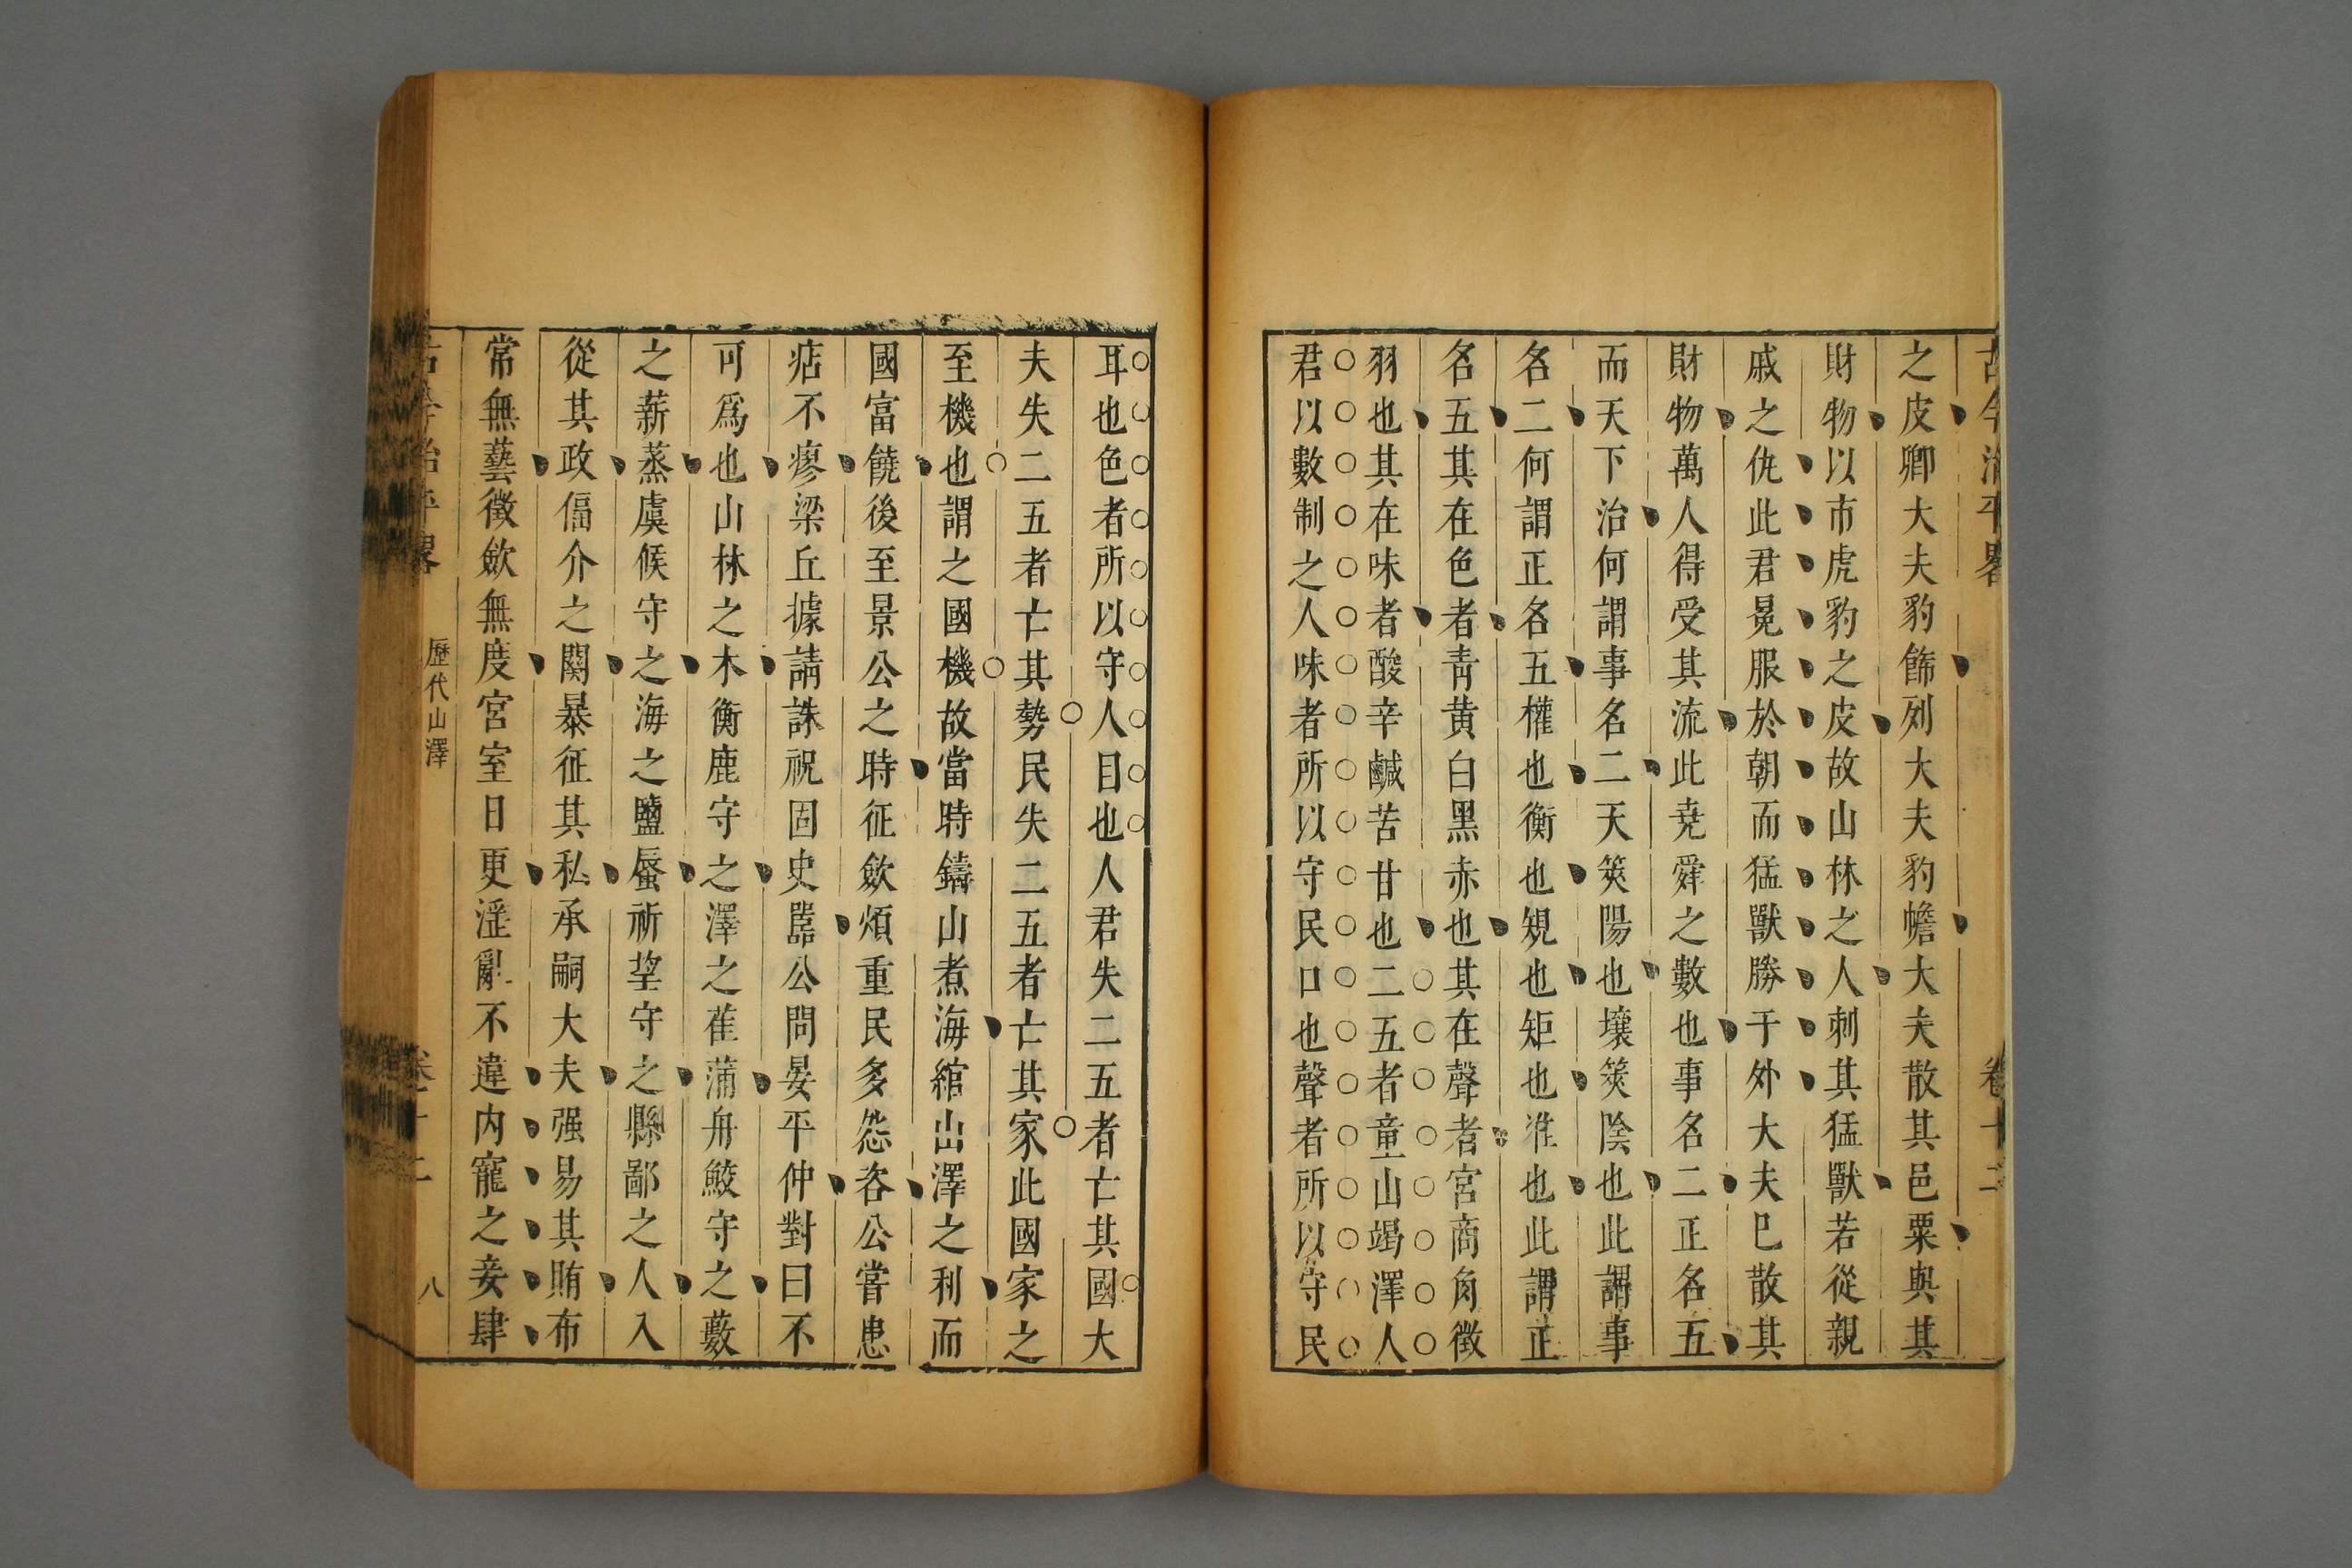 古今治平畧 卷十二
之皮卿大夫豹飾列大夫豹幨大夫散其邑粟與其
財物以市虎豹之皮故山林之人刺其猛獸若從親
戚之仇此君冕服於朝而猛獸勝于外大夫巳散其
財物萬人得受其流此堯舜之數也事名二正名五
而天下治何謂事名二天筴陽也壤筴陰也此謂事
名二何謂正名五權也衡也規也矩也准也此謂正
名五其在色者青黃白黑赤也其在聲者宮商角徵
羽也其在味者酸辛鹹苦甘也二五者童山竭澤人
君以數制之人味者所以守民口也聲者所以守民
耳也色者所以守人目也人君失二五者亡其國大
夫失二五者亡其勢民失二五者亡其家此國家之
至機也謂之國機故當時鑄山煮海綰山澤之利而
國富饒後至景公之時征斂煩重民多怨咨公嘗患
痁不瘳梁丘據請誅祝固史嚚公問晏平仲對曰不
可爲也山林之木衡鹿守之澤之萑蒲舟鮫守之藪
之薪蒸虞候守之海之鹽蜃祈望守之縣鄙之人入
從其政偪介之關暴征其私承嗣大夫强易其賄布
常無藝徵斂無度宮室日更淫亂不違内寵之妾肆
古今治平畧 歷代山澤 卷十二 八